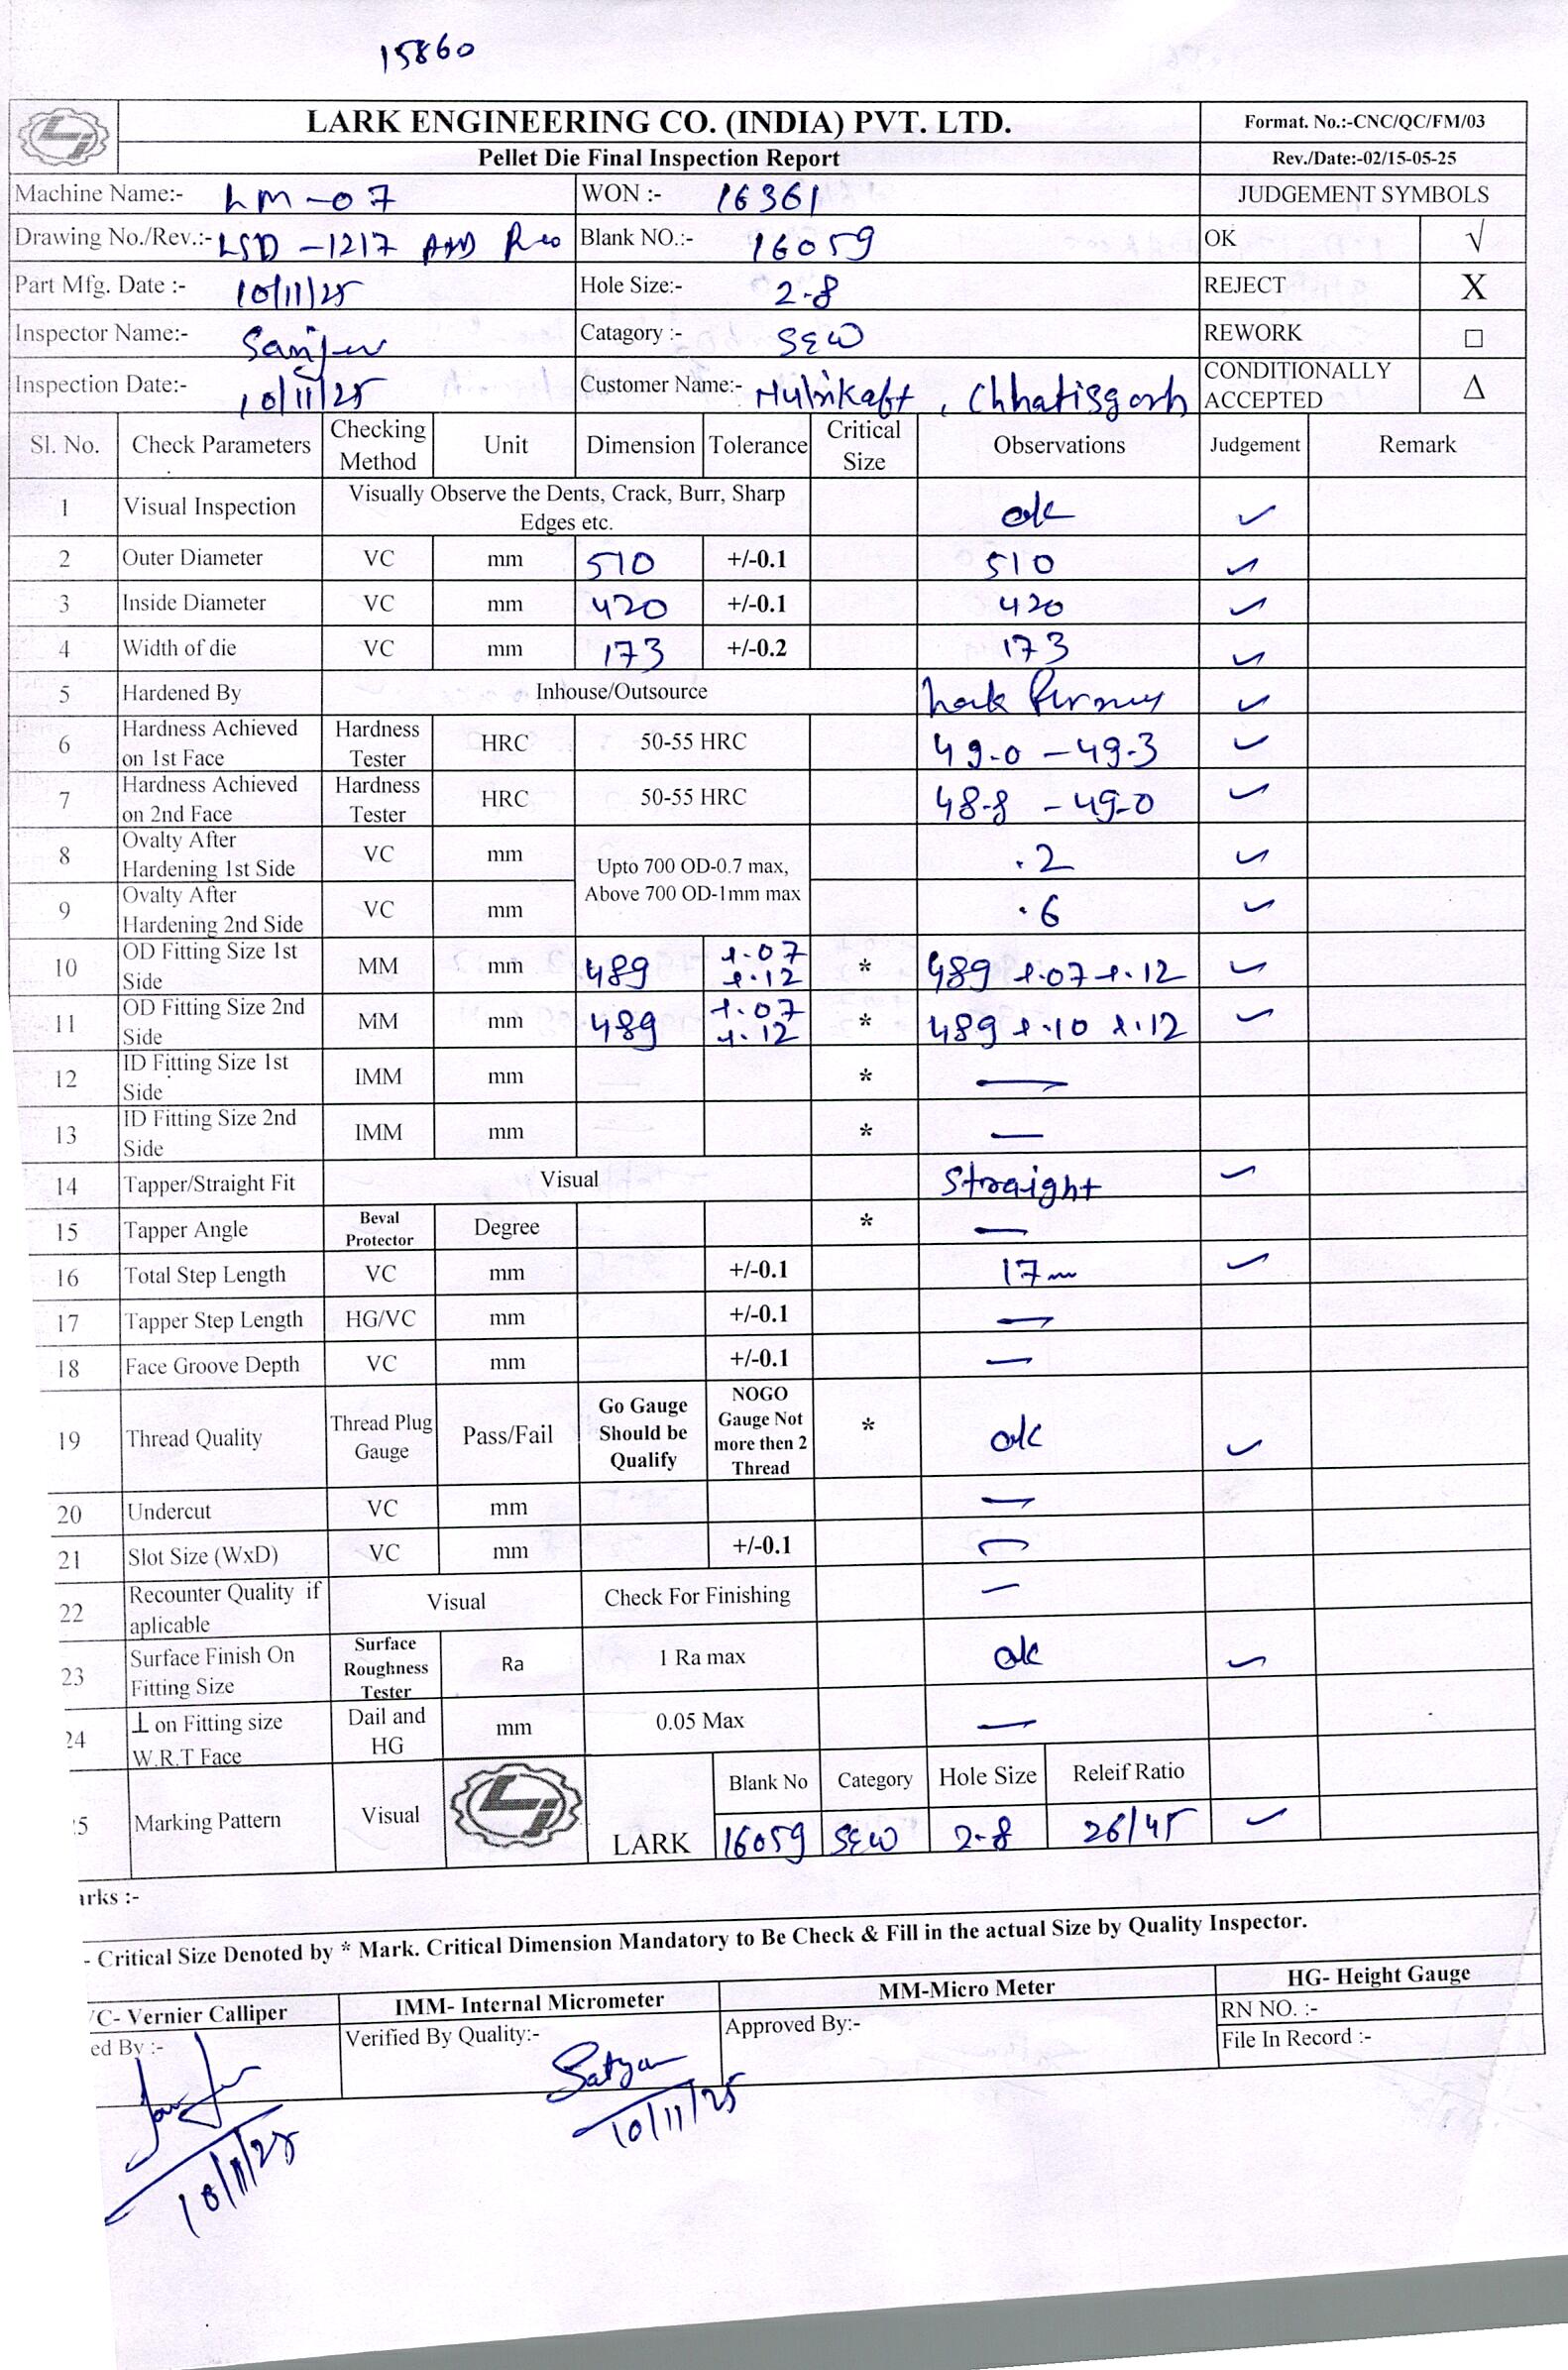 15860
LARK ENGINEERING CO. (INDIA) PVT. LTD. Format. No.:-CNC/QC/FM/03
Pellet Die Final Inspection Report Rev./Date:-02/15-05-25
Machine Name:- LM-07 WON :- 16361 JUDGEMENT SYMBOLS
Drawing No./Rev.:- LSD -1217 Blank NO.:- 16059 OK √
Part Mfg. Date :- 10/11/25 Hole Size:- 2.8 REJECT X
Inspector Name:- Sanjeev Catagory :- S&W REWORK □
Inspection Date:- 10/11/25 Customer Name:- , Chhatisgarh CONDITIONALLY ACCEPTED Δ
Sl. No. Check Parameters Checking Method Unit Dimension Tolerance Critical Size Observations Judgement Remark
1 Visual Inspection Visually Observe the Dents, Crack, Burr, Sharp Edges etc. ok ✓
2 Outer Diameter VC mm 510 +/-0.1 510 ✓
3 Inside Diameter VC mm 420 +/-0.1 420 ✓
4 Width of die VC mm 173 +/-0.2 173 ✓
5 Hardened By Inhouse/Outsource Lark ✓
6 Hardness Achieved on 1st Face Hardness Tester HRC 50-55 HRC 49.0 - 49.3 ✓
7 Hardness Achieved on 2nd Face Hardness Tester HRC 50-55 HRC 48.8 - 49.0 ✓
8 Ovalty After Hardening 1st Side VC mm Upto 700 OD-0.7 max, Above 700 OD-1mm max .2 ✓
9 Ovalty After Hardening 2nd Side VC mm .6 ✓
10 OD Fitting Size 1st Side MM mm 489 +.07 +.12 * 489 +.07 +.12 ✓
11 OD Fitting Size 2nd Side MM mm 489 +.07 +.12 * 489 +.10 +.12 ✓
12 ID Fitting Size 1st Side IMM mm * —
13 ID Fitting Size 2nd Side IMM mm * —
14 Tapper/Straight Fit Visual Straight ✓
15 Tapper Angle Beval Protector Degree * —
16 Total Step Length VC mm +/-0.1 17mm ✓
17 Tapper Step Length HG/VC mm +/-0.1 —
18 Face Groove Depth VC mm +/-0.1 —
19 Thread Quality Thread Plug Gauge Pass/Fail Go Gauge Should be Qualify NOGO Gauge Not more then 2 Thread * ok ✓
20 Undercut VC mm —
21 Slot Size (WxD) VC mm +/-0.1 —
22 Recounter Quality if aplicable Visual Check For Finishing —
23 Surface Finish On Fitting Size Surface Roughness Tester Ra 1 Ra max ok ✓
24 ⊥ on Fitting size W.R.T Face Dail and HG mm 0.05 Max —
:5 Marking Pattern Visual LARK Blank No Category Hole Size Releif Ratio
16059 S&W 2.8 26/45 ✓
arks :-
- Critical Size Denoted by * Mark. Critical Dimension Mandatory to Be Check & Fill in the actual Size by Quality Inspector.
/C- Vernier Calliper IMM- Internal Micrometer MM-Micro Meter HG- Height Gauge
ed By :- Verified By Quality:- Approved By:- RN NO. :-
File In Record :-
Satyam
10/11/25 10/11/25